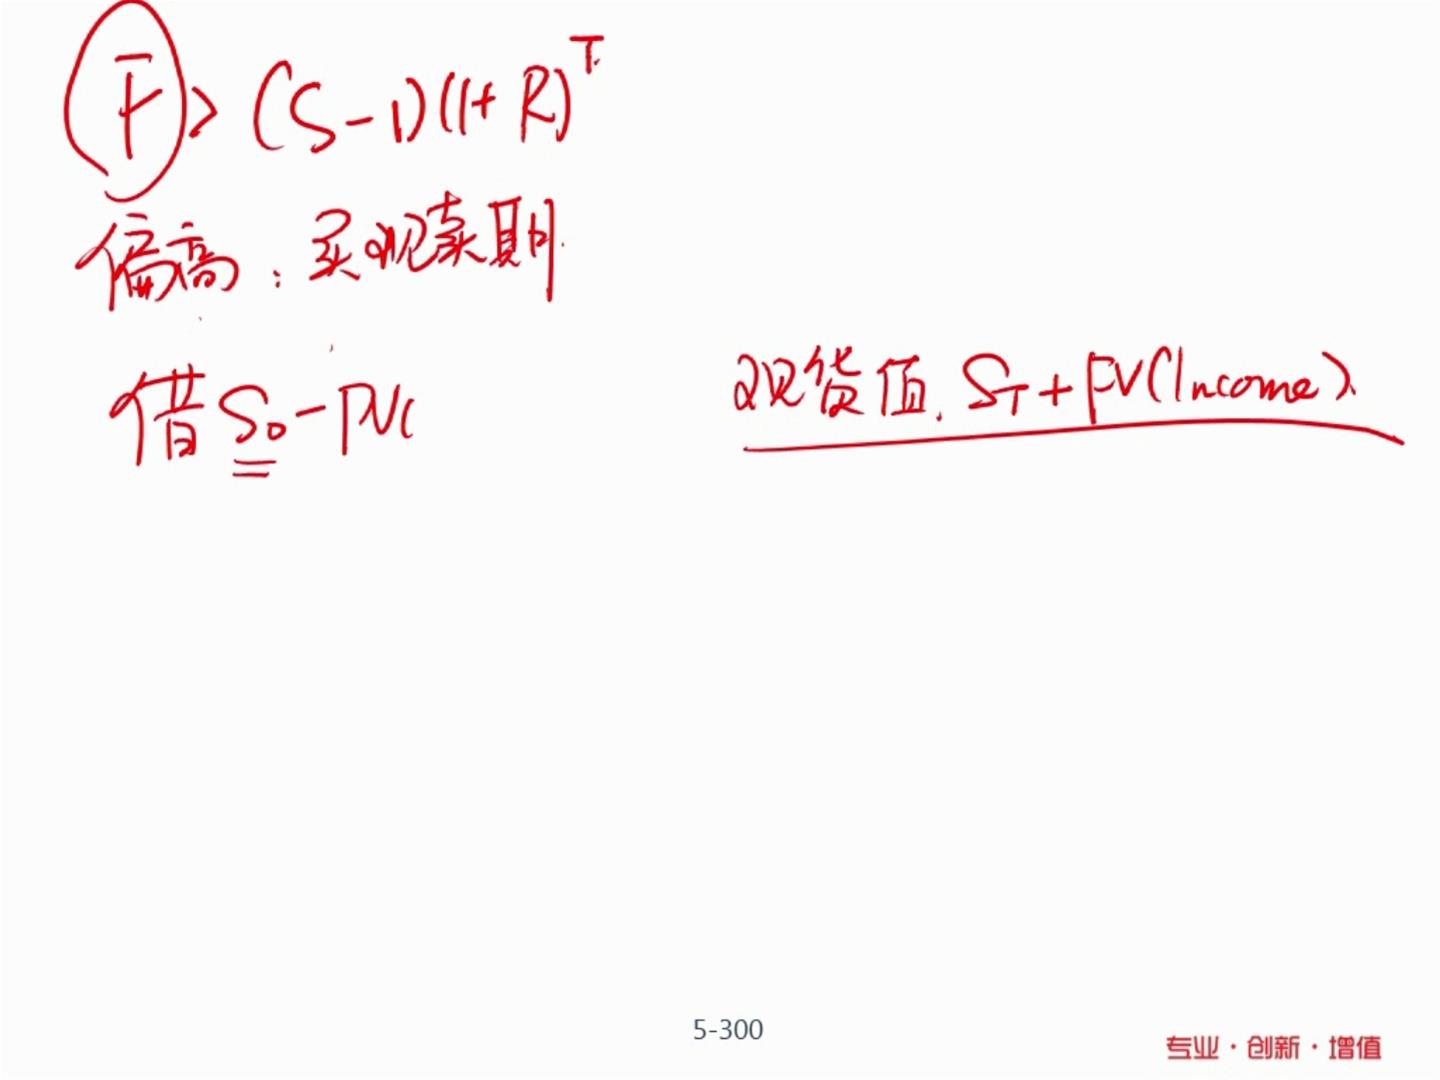 F > (S-I)(1+R)^T
偏高：买现卖期
借 S₀ - PV(
现货值. S_T + FV(Income).
5-300
专业·创新·增值